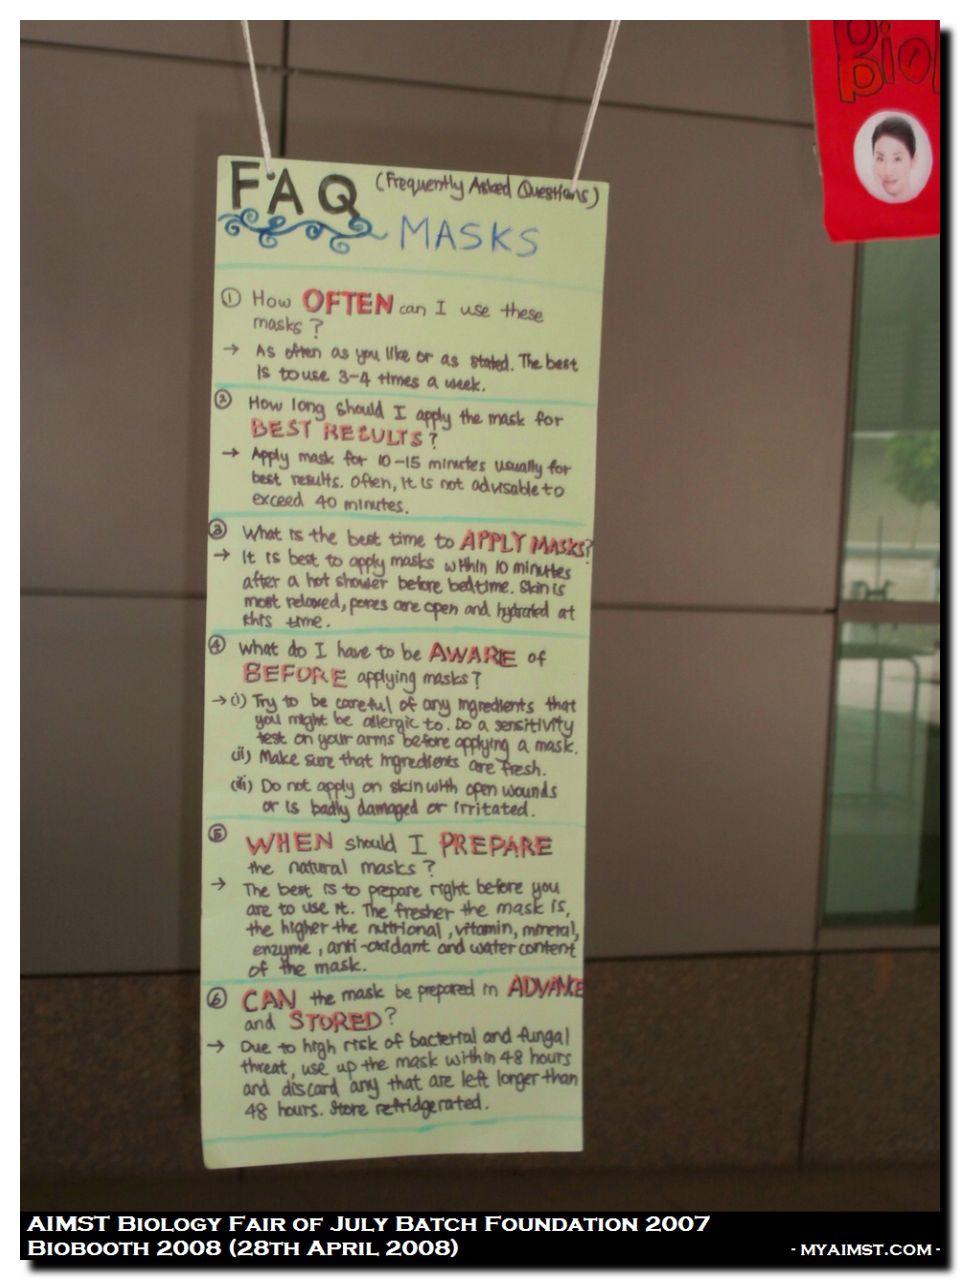 FAQ (Frequently Asked Questions)
MASKS
① How OFTEN can I use these
masks?
→ As often as you like or as stated. The best
is to use 3-4 times a week.
② How long should I apply the mask for
BEST RESULTS?
→ Apply mask for 10-15 minutes usually for
best results. Often, it is not advisable to
exceed 40 minutes.
③ What is the best time to APPLY MASKS?
→ It is best to apply masks within 10 minutes
after a hot shower before bedtime. Skin is
most relaxed, pores are open and hydrated at
this time.
④ What do I have to be AWARE of
BEFORE applying masks?
→ (i) Try to be careful of any ingredients that
you might be allergic to. Do a sensitivity
test on your arms before applying a mask.
(ii) Make sure that ingredients are fresh.
(iii) Do not apply on skin with open wounds
or is badly damaged or irritated.
⑤ WHEN should I PREPARE
the natural masks?
→ The best is to prepare right before you
are to use it. The fresher the mask is,
the higher the nutritional, vitamin, mineral,
enzyme, anti-oxidant and water content
of the mask.
⑥ CAN the mask be prepared in ADVANCE
and STORED?
→ Due to high risk of bacterial and fungal
threat, use up the mask within 48 hours
and discard any that are left longer than
48 hours. Store refridgerated.
Bio
AIMST Biology Fair of July Batch Foundation 2007
Biobooth 2008 (28th April 2008)
- myaimst.com -